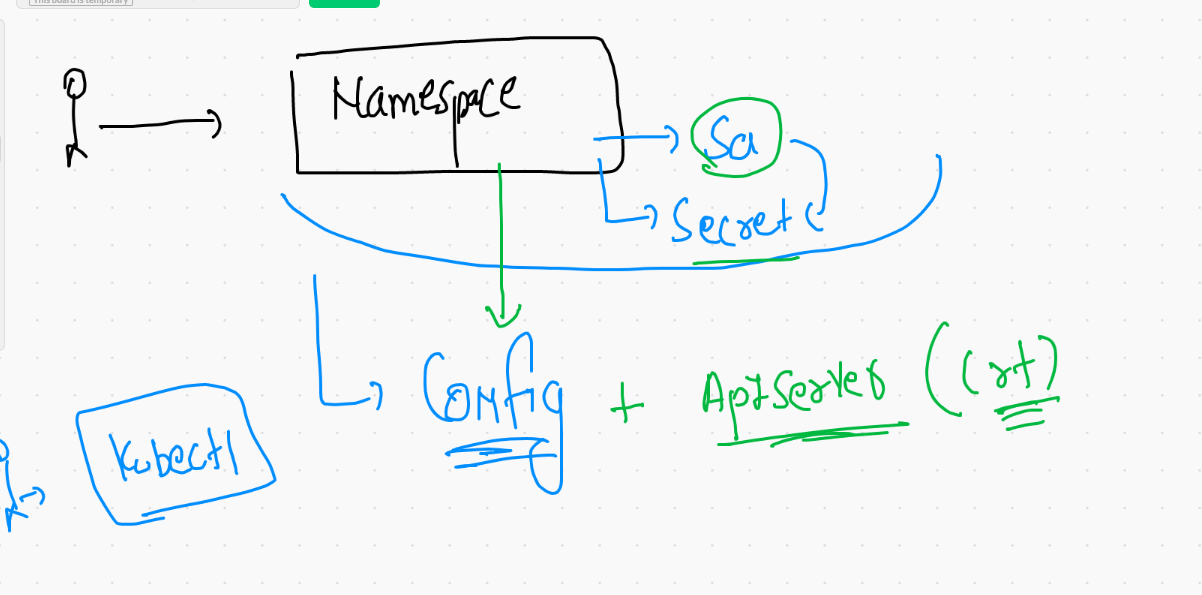 This board is temporary
Namespace
Sa
Secret
Config + ApIServer (Crt)
Kubectl